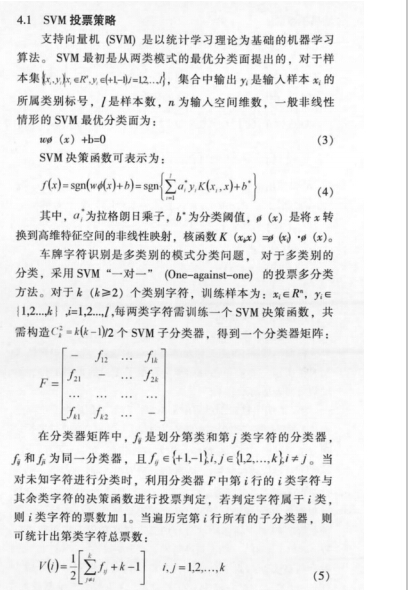 4.1 SVM 投票策略
支持向量机 (SVM) 是以统计学习理论为基础的机器学习
算法。 SVM 最初是从两类模式的最优分类面提出的，对于样
本集{xᵢ,yᵢ|xᵢ∈Rⁿ,yᵢ∈{+1,-1},i=1,2...,l}，集合中输出 yᵢ 是输入样本 xᵢ 的
所属类别标号，l 是样本数，n 为输入空间维数，一般非线性
情形的 SVM 最优分类面为：
wφ (x) +b=0 (3)
SVM 决策函数可表示为：
f(x)=sgn(wφ(x)+b)=sgn{∑ᵢ₌₁ˡ aᵢ*yᵢK(xᵢ,x)+b*} (4)
其中，aᵢ*为拉格朗日乘子，b*为分类阈值，φ (x) 是将 x 转
换到高维特征空间的非线性映射，核函数 K (xᵢ,x) =φ (xᵢ) ·φ (x)。
车牌字符识别是多类别的模式分类问题， 对于多类别的
分类，采用 SVM “一对一” (One-against-one) 的投票多分类
方法。对于 k (k≥2) 个类别字符，训练样本为：xᵢ∈Rⁿ，yᵢ∈
{1,2...,k} ,i=1,2...,l,每两类字符需训练一个 SVM 决策函数，共
需构造 Cₖ²=k(k-1)/2 个 SVM 子分类器，得到一个分类器矩阵：
F=[
− f₁₂ … f₁ₖ
f₂₁ − … f₂ₖ
… … … …
fₖ₁ fₖ₂ … −
]
在分类器矩阵中，fᵢⱼ 是划分第类和第 j 类字符的分类器，
fᵢⱼ 和 fⱼᵢ 为同一分类器，且 fᵢⱼ∈{+1,−1},i,j∈{1,2,...,k},i≠j。当
对未知字符进行分类时，利用分类器 F 中第 i 行的 i 类字符与
其余类字符的决策函数进行投票判定，若判定字符属于 i 类，
则 i 类字符的票数加 1。当遍历完第 i 行所有的子分类器，则
可统计出第类字符总票数：
V(i)=1/2[∑ⱼ≠ᵢᵏ fᵢⱼ+k−1] i,j=1,2,...,k (5)